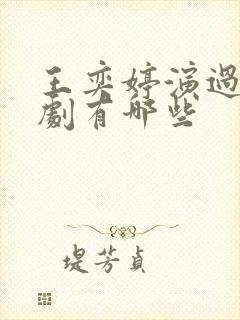 王奕婷演過
劇有哪些
堤芳貞